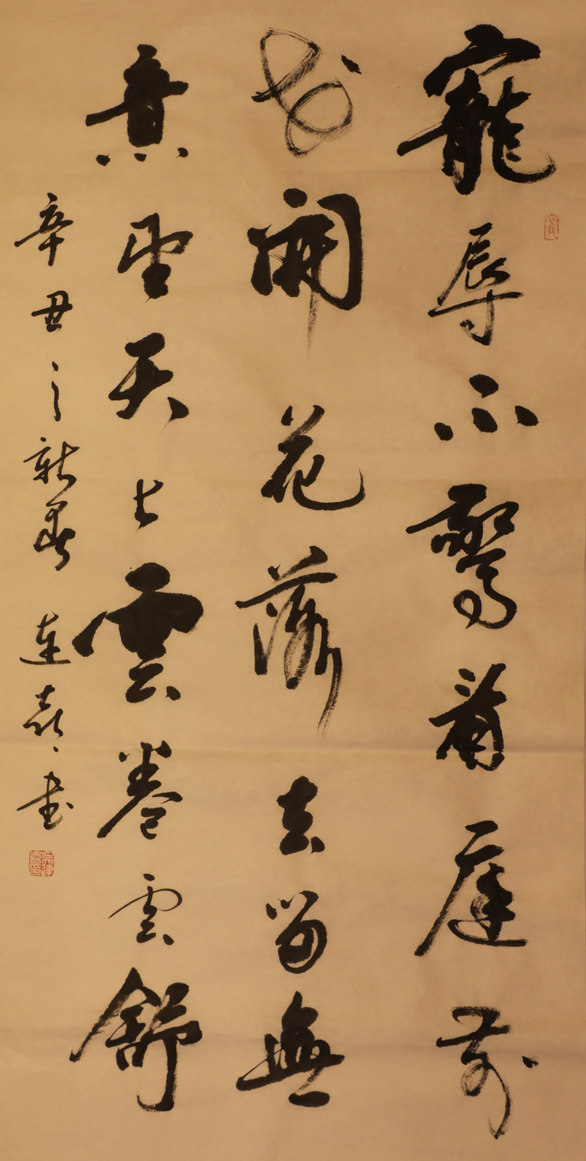 寵辱不驚看庭前
花開花落去留無
意望天上雲卷雲舒
辛丑之新春 連 書